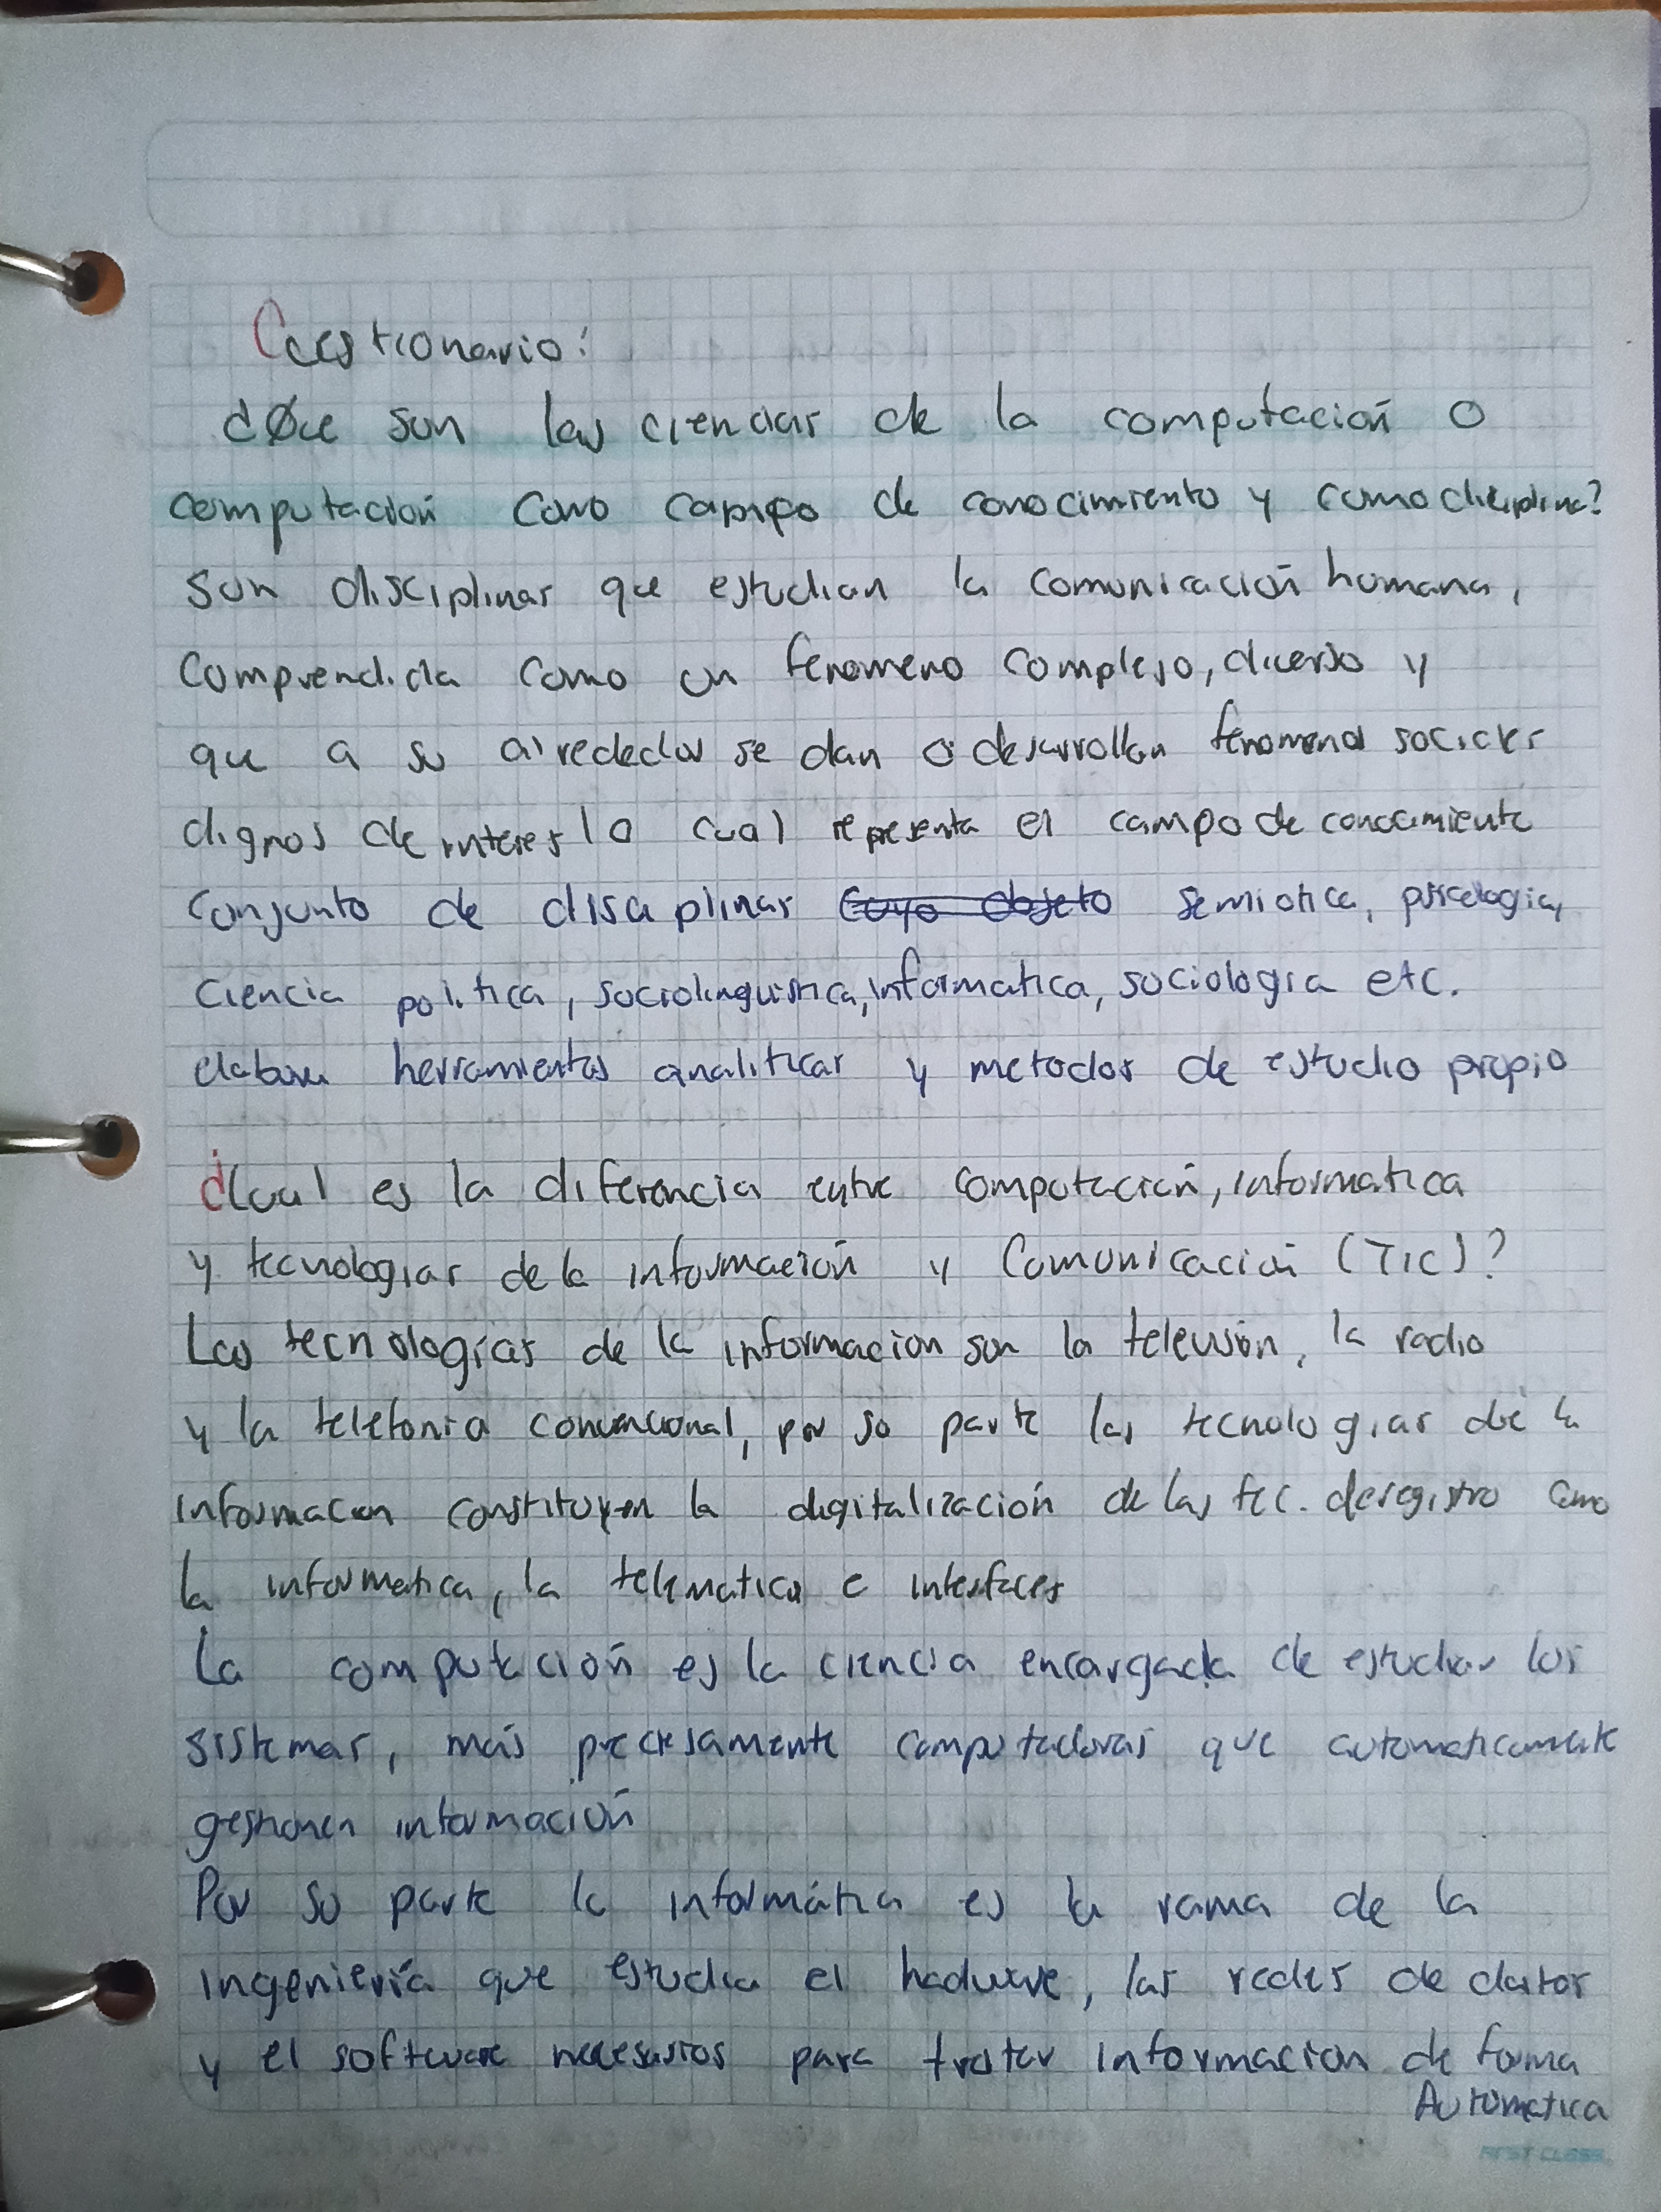 Cuestionario:
¿Que son las ciencias de la computación o
computación como campo de conocimiento y como disciplina?
Son disciplinas que estudian la comunicación humana,
comprendida como un fenomeno complejo, diverso y
que a su alrededor se dan o desarrollan fenomenos sociales
dignos de interes lo cual representa el campo de conocimiento
conjunto de disciplinas cuyo objeto semiotica, psicologia,
ciencia politica, sociolinguistica, informatica, sociologia etc.
elabora herramientas analiticas y metodos de estudio propio
¿Cual es la diferencia entre computación, informatica
y tecnologias de la información y Comunicación (TIC)?
Las tecnologías de la informacion son la television, la radio
y la telefonia convencional, por su parte las tecnologias de la
informacion constituyen la digitalización de las tec. de registro como
la informatica, la telematica e interfaces
La computación es la ciencia encargada de estudiar los
sistemas, más precisamente computadoras que automaticamente
gestionen información
Por su parte la informática es la rama de la
ingeniería que estudia el hadware, las redes de datos
y el software necesarios para tratar informacion de forma
Automatica
FIRST CLASS